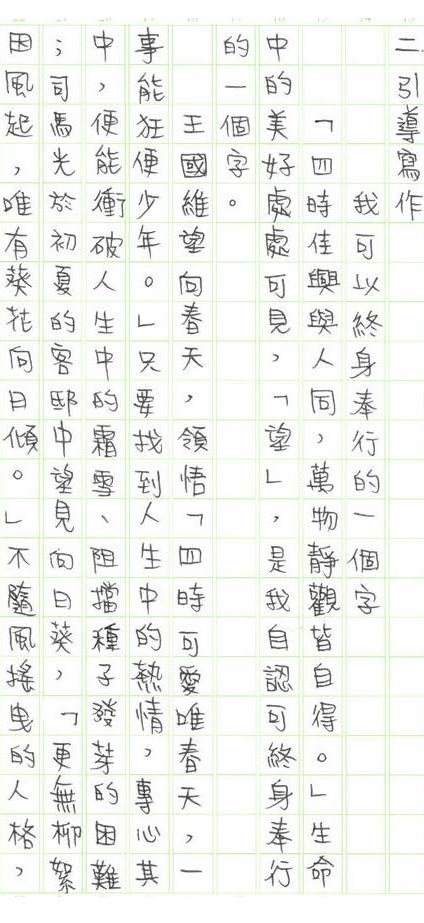 二、引導寫作
我可以終身奉行的一個字
「四時佳興與人同，萬物靜觀皆自得。」生命
中的美好處處可見，「望」，是我自認可終身奉行
的一個字。
王國維望向春天，領悟「四時可愛唯春天，一
事能狂便少年。」只要找到人生中的熱情，專心其
中，便能衝破人生中的霜雪、阻擋種子發芽的困難
；司馬光於初夏的客邸中望見向日葵，「更無柳絮
因風起，唯有葵花向日傾。」不隨風搖曳的人格，